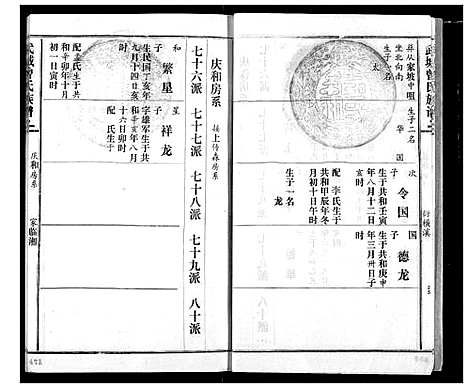 武城曾氏族谱
葬从家坟中嘴
坐北向南
生子一名
太
生子二名
华
国
次
子
令国
生于共和壬寅
年八月十二日
亥时
配李氏生于
共和甲辰年冬
月初十日午时
生子一名
龙
国
子
德龙
生于共和庚申
年三月卅日子
时
衍横溪
庆和房系
接上传森房系
七十六派 七十七派 七十八派 七十九派 八十派
和
子
繁星
生民国丁亥年
九月十四日亥
时
配孟氏生于共
和辛卯年十月
初一日寅时
星
子
祥龙
字雄军生于共
和辛亥年八月
十六日卯时
配 氏生于
武城曾氏族谱
庆和房系
家临湘